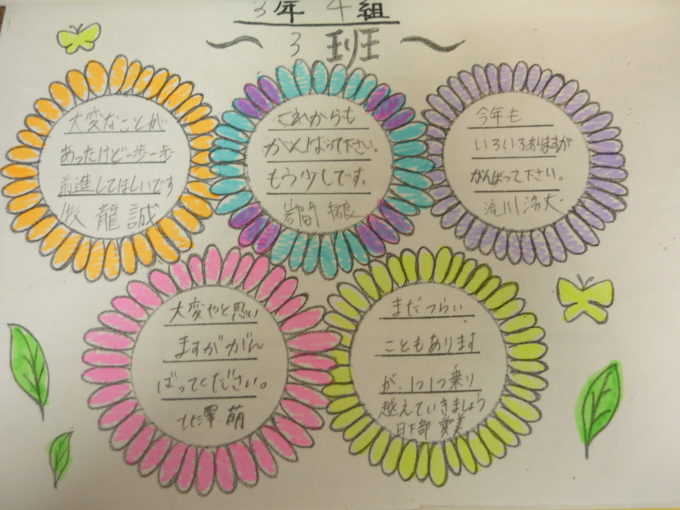 3年4組
〜3班〜
大変なことが
あったけど一歩一歩
前進してほしいです
龍誠
これからも
がんばって下さい。
もう少しです。
岩間
今年も
いろいろありますが
がんばって下さい。
滝川
大変やと思い
ますががん
ばってください。
萌
まだつらい
こともあります
が、1つ1つ乗り
越えていきましょう
日下部 愛美